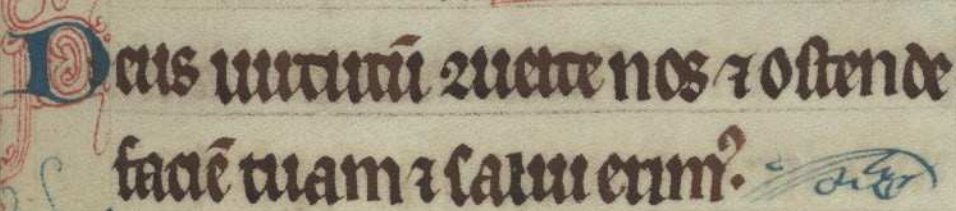 Deus uirtutū ꝯuerte nos ⁊ ostende
faciē tuam ⁊ salui erimꝰ.